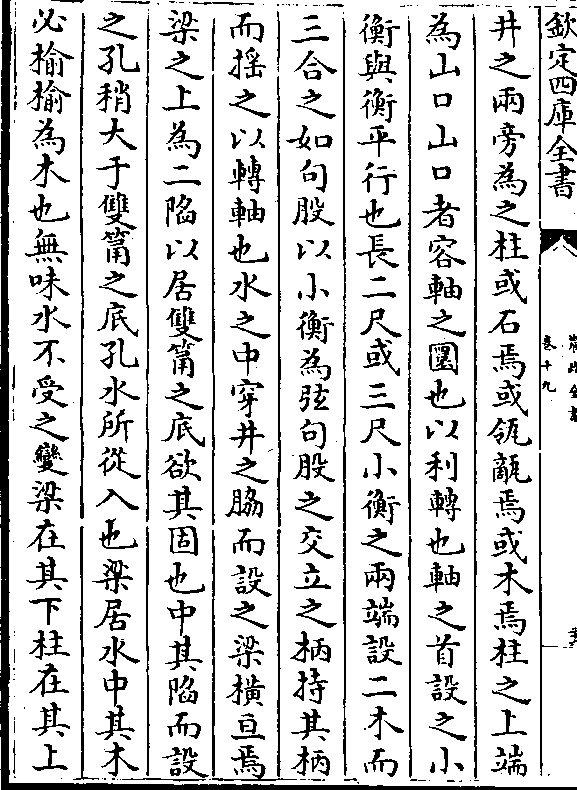 欽定四庫全書
卷十九
井之兩旁為之柱或石焉或瓴甋焉或木焉柱之上端
為山口山口者容軸之圜也以利轉也軸之首設之小
衡與衡平行也長二尺或三尺小衡之兩端設二木而
三合之如句股以小衡為弦句股之交立之柄持其柄
而揺之以轉軸也水之中穿井之脇而設之梁橫亘焉
梁之上為二陷以居雙筩之底欲其固也中其陷而設
之孔稍大于雙筩之底孔水所從入也梁居水中其木
必揄揄為木也無味水不受之變梁在其下柱在其上